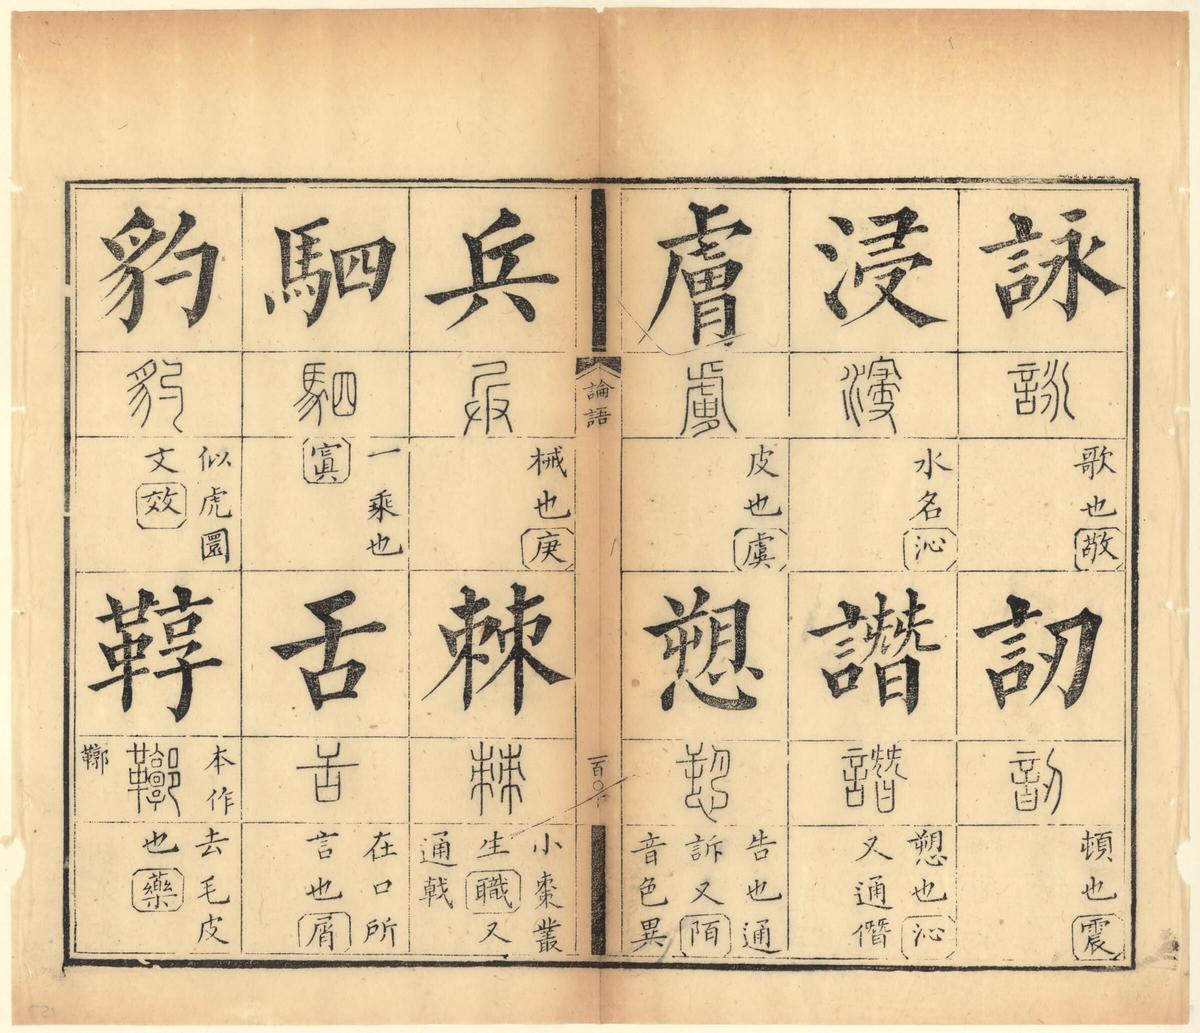 詠
詠
歌也敬
訒
訒
頓也震
浸
濅
水名沁
譖
譖
愬也沁
又通僭
膚
臚
皮也虞
愬
愬
告也通
訴又陌
音色異
論語
一百〇
兵
兵
械也庚
棘
棘
小棗叢
生職又
通戟
駟
駟
一乘也
寘
舌
舌
在口所
言也屑
豹
豹
似虎圜
文效
鞟
本作
鞹
鞹
去毛皮
也藥